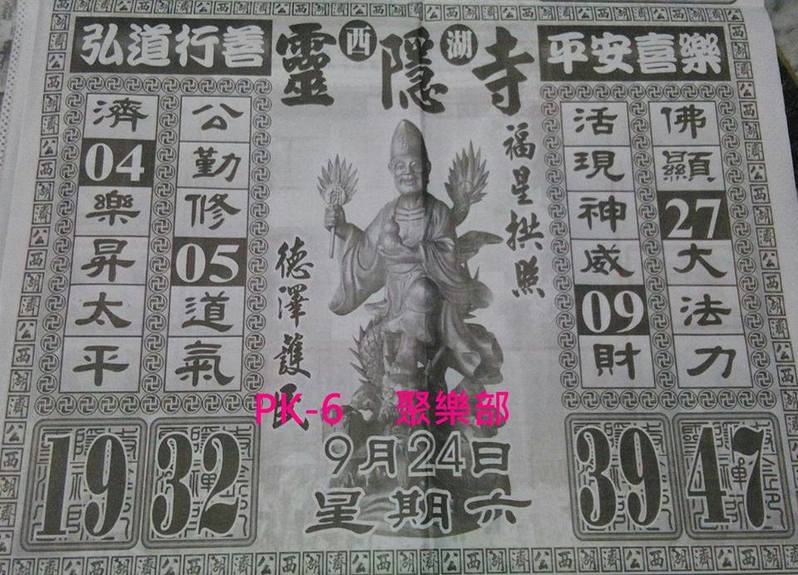 弘道行善
西湖
靈隱寺
平安喜樂
佛顯27大法力
活現神威09財
福星拱照
德澤護民
公勤修05道氣
濟04樂昇太平
PK-6 聚樂部
9月24日
星期六
19
32
39
47